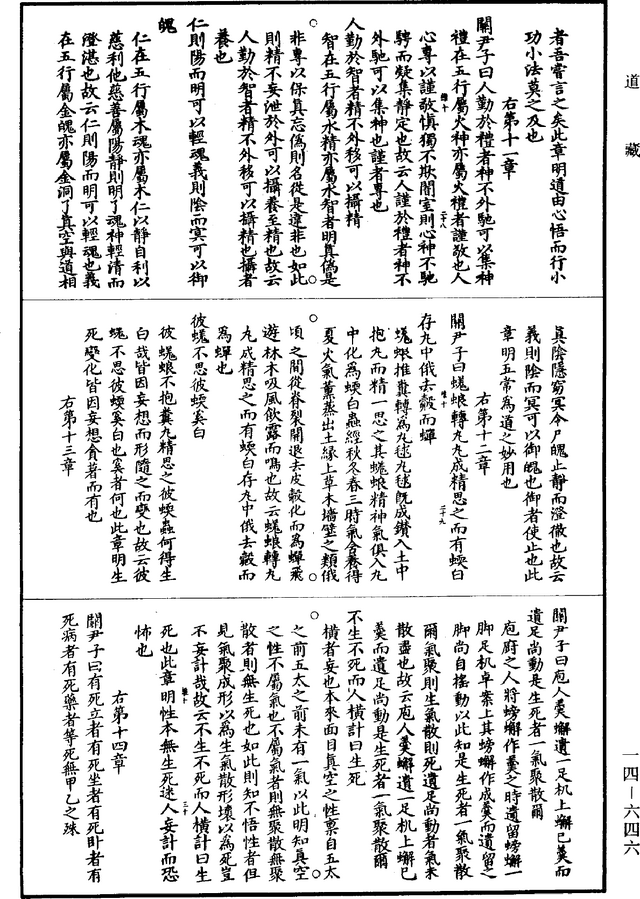 道藏
者吾嘗言之矣此章明遺由心悟而行小
功小法莫之及也
右第十一章
關尹子曰人勤於禮者神不外馳可以集神
禮在五行屬火神亦屬火禮者謹敬也人
心專以謹敬慎獨不欺闇室則心神不馳
騁而凝集靜定也故云人謹於禮者神不
外馳可以集神也謹者專也
人勤於智者精不外移可以攝精
智在五行屬水精亦屬水智者明真偽是
非專以保真忘偽則名從是違非也如此
則精不妄泄於外可以攝養至精也故云
人勤於智者精不外移可以攝精也攝者
養也
仁則陽而明可以輕魂義則陰而冥可以御
魄
仁在五行屬木魂亦屬木仁以靜自利以
慈利他慈善屬陽靜則明了魂神輕清而
澄湛也故云仁則陽而明可以輕魂也義
在五行屬金魄亦屬金洞了真空與道相
真陰隱窈冥今尸魄止靜而澄徹也故云
義則陰而冥可以御魄也御者使止也此
章明五常為道之妙用也
右第十二章
關尹子曰蜣蜋轉丸丸成精思之而有蝡白
存丸中俄去殼而蟬
蜣蜋推糞轉為丸毬丸毬既成鑽入土中
抱丸而精一思之其蜣蜋精神氣俱入丸
中化為蝡白蟲經秋冬春三時氣含養得
夏火氣薰蒸出土緣上草木墻壁之類俄
頃之間從脊裂開退去皮殼化而為蟬飛
遊林木吸風飲露而鳴也故云蜣蜋轉丸
丸成精思之而有蝡白存丸中俄去殼而
為蟬也
彼蜣不思彼蝡奚白
彼蜣蜋不抱糞丸精思之彼蝡蟲何得生
白哉皆因妄想而形隨之而變也故云彼
蜣不思彼蝡奚白也奚者何也此章明生
死變化皆因妄想貪著而有也
右第十三章
關尹子曰庖人羹蠏遺一足机上蠏已羹而
遺足尚動是生死者一氣聚散爾
庖府之人將螃蠏作羹之時遺留螃蠏一
脚足机卓案上其螃蠏作成羹而遺留之
脚尚自搖動以此知是生死者一氣聚散
爾氣聚則生氣散則死遺足尚動者氣未
散盡也故云庖人羹蠏遺一足机上蠏已
羹而遺足尚動是生死者一氣聚散爾
不生不死而人橫計曰生死
橫者妄也本來面目真空之性禀自五太
之前五太之前未有一氣以此明知真空
之性不屬氣也不屬氣者則無聚散無聚
散者則無生死也如此則知不悟性者但
見氣聚成形以為生氣散形壞以為死豈
不妄計哉故云不生不死而人橫計曰生
死也此章明性本無生死迷人妄計而恐
怖也
右第十四章
關尹子曰有死立者有死坐者有死卧者有
死病者有死藥者等死無甲乙之殊
一四—六四六